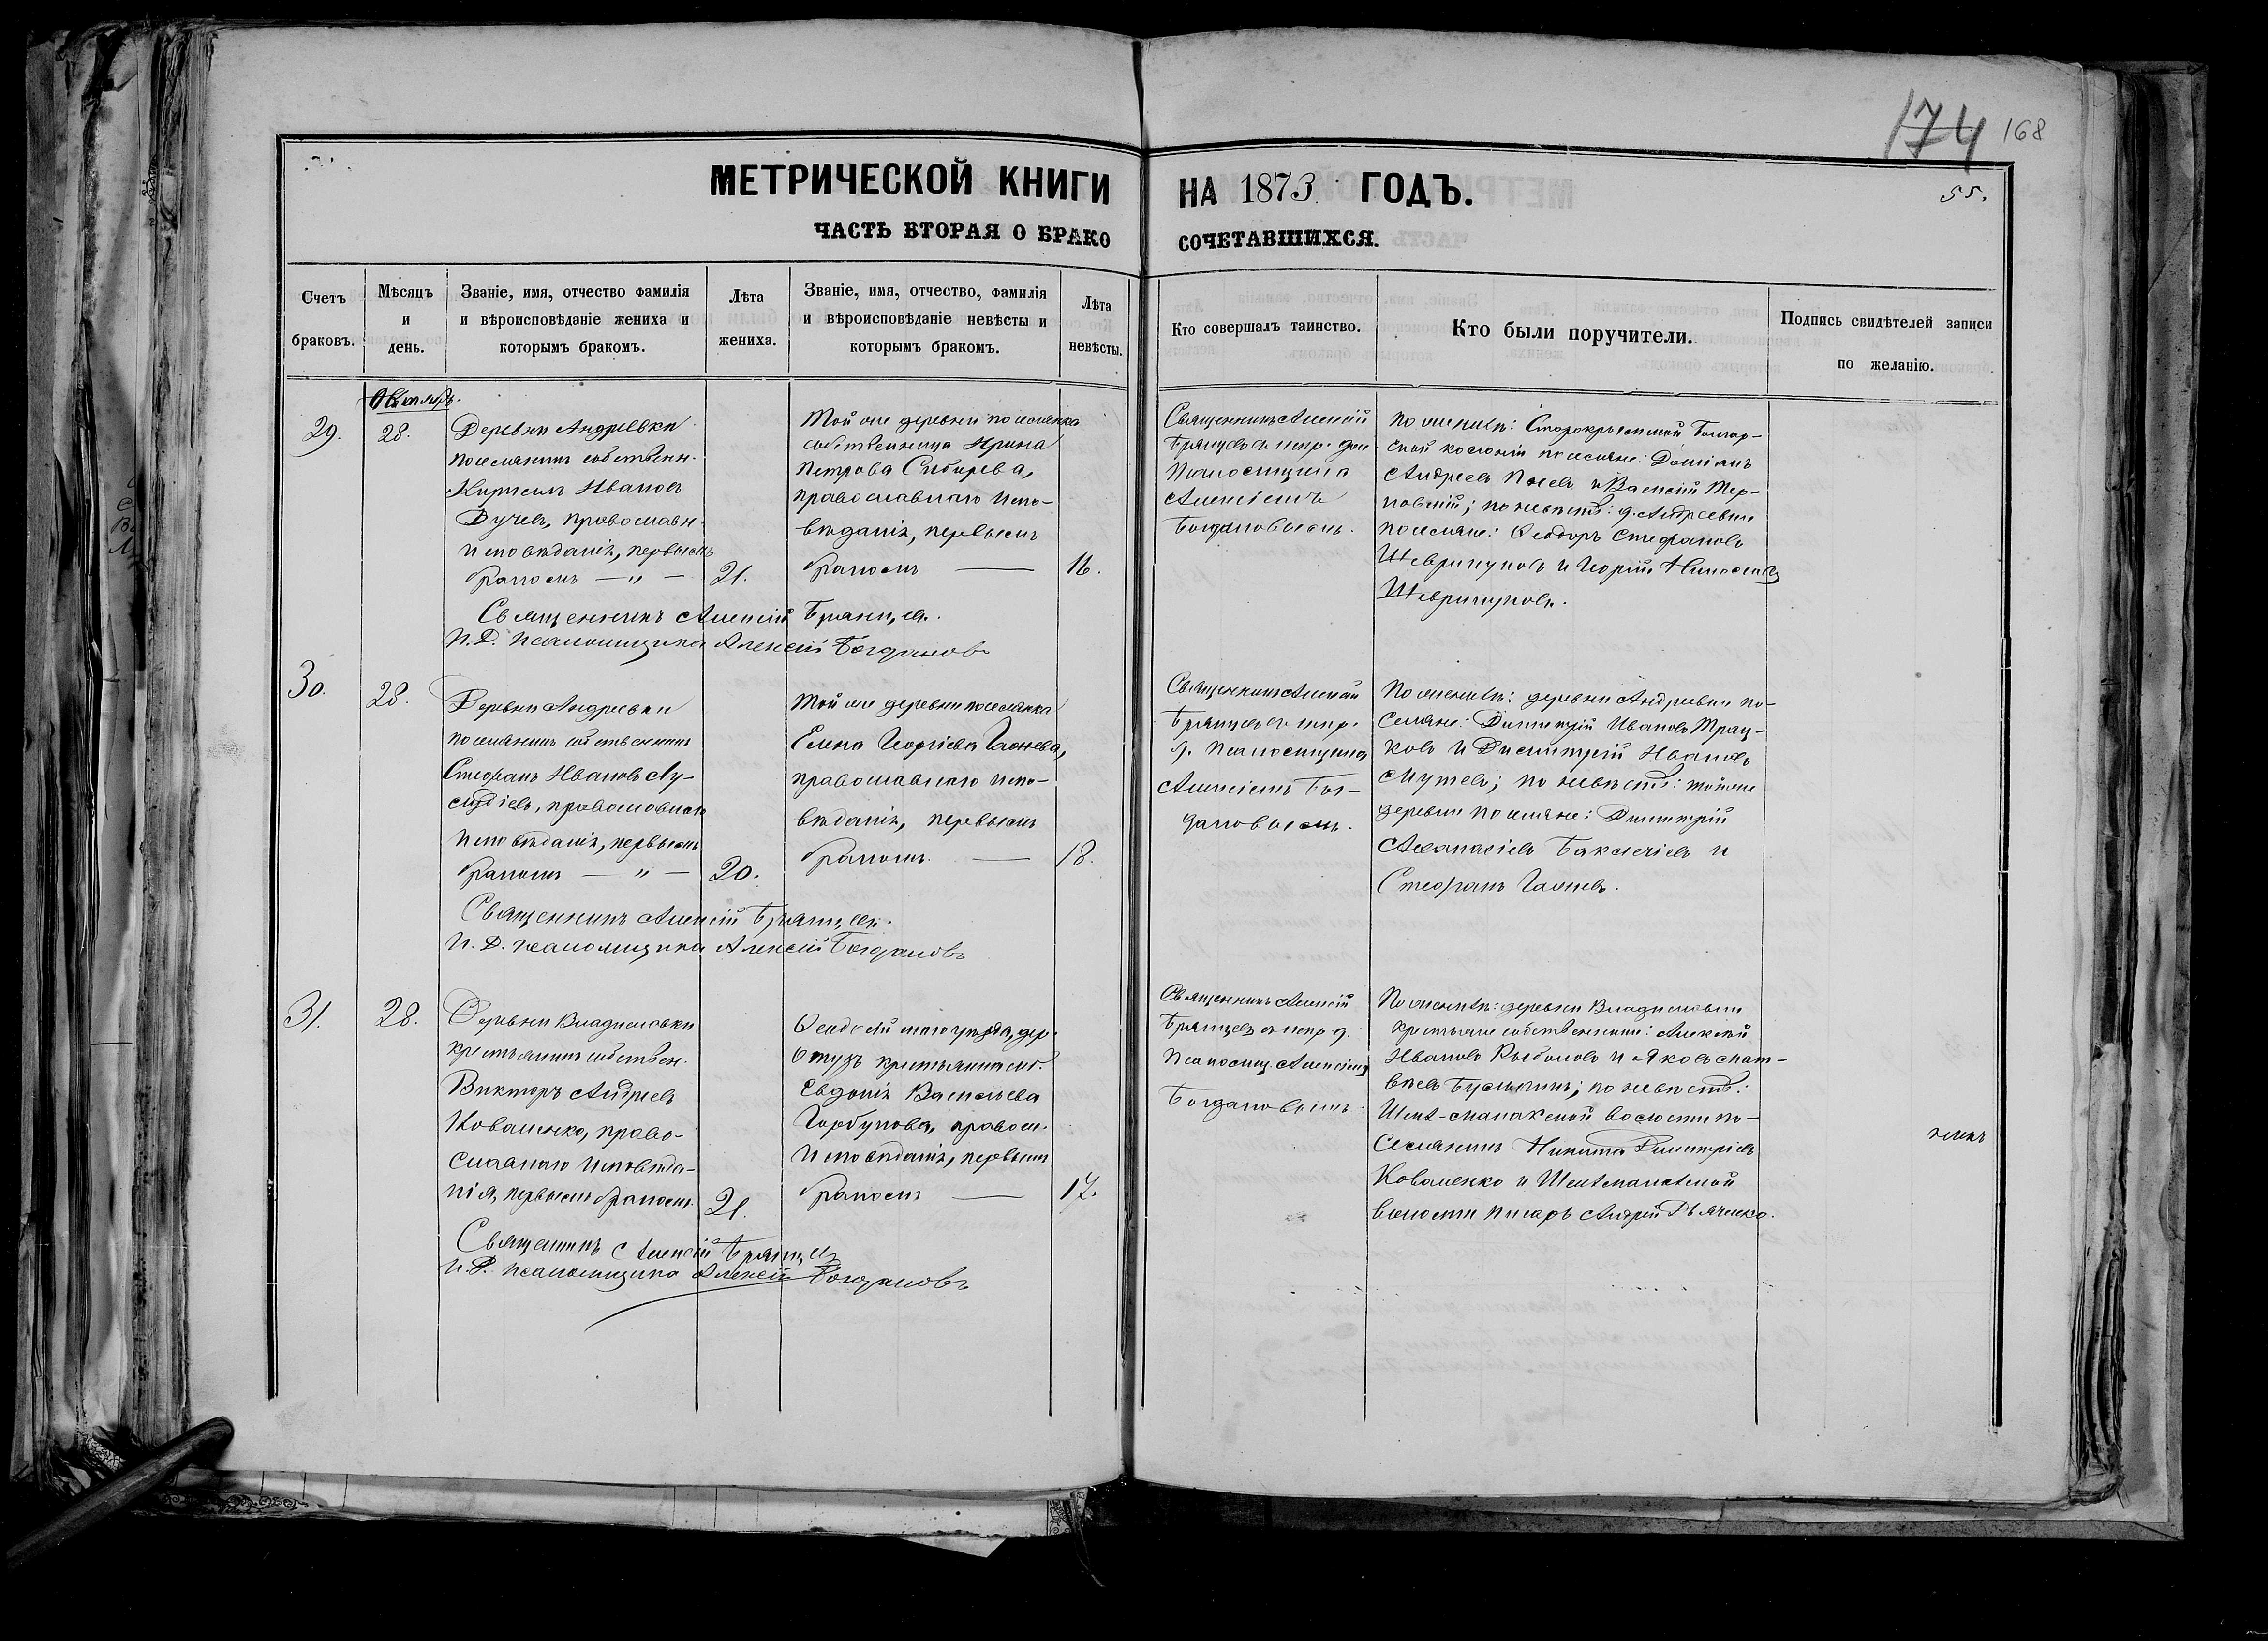 174 168
55.
МЕТРИЧЕСКОЙ КНИГИ НА 1873 ГОДЪ.
ЧАСТЬ ВТОРАЯ О БРАКОСОЧЕТАВШИХСЯ.
Счетъ браковъ.
Мѣсяцъ и день.
Званіе, имя, отчество фамилія и вѣроисповѣданіе жениха и которымъ бракомъ.
Лѣта жениха.
Званіе, имя, отчество, фамилія и вѣроисповѣданіе невѣсты и которымъ бракомъ.
Лѣта невѣсты.
Кто совершалъ таинство.
Кто были поручители.
Подпись свидѣтелей записи по желанію.
Октябрь.
29.
28.
Деревни Андреевки
поселянинъ собственн.
Кириллъ Ивановъ
Дучевъ, православн.
исповѣданія, первымъ
бракомъ — „ —
21.
Той же деревни поселянка
собственница Ирина
Петрова Сибирева,
православнаго испо-
вѣданія, первымъ
бракомъ —
16.
Священникъ Алексій
Брянцевъ съ испр. дол.
Псаломщика
Алексіемъ
Богдановымъ.
По женихѣ: Старокрымской Болгар-
ской колоніи поселяне: Доміанъ
Андреевъ и Василій Тер-
новскій; по невѣстѣ: д. Андреевки
поселяне: Ѳеодоръ Стефановъ
Шевринуковъ и Георгій
Шевринуковъ.
Священникъ Алексій Брянцевъ.
И. Д. псаломщика Алексій Богдановъ
30.
28.
Деревни Андреевки
поселянинъ собственникъ
Стефанъ Ивановъ
православнаго
исповѣданія, первымъ
бракомъ — „ —
20.
Той же деревни поселянка
Елена Георгіева Галнева,
православнаго испо-
вѣданія, первымъ
бракомъ. —
18.
Священникъ Алексій
Брянцевъ съ испр.
д. Псаломщика
Алексіемъ Бог-
дановымъ.
По женихѣ: деревни Андреевки по-
селяне: Димитрій Ивановъ Трац-
ковъ и Димитрій Ивановъ
Мутевъ; по невѣстѣ: той же
деревни поселяне: Димитрій
Аѳанасіевъ Бакмечіевъ и
Стефанъ Галневъ.
Священникъ Алексій Брянцевъ.
И. Д. псаломщика Алексій Богдановъ
31.
28.
Деревни Владиславки
крестьянинъ собствен.
Викторъ Андреевъ
Коваленко, право-
славнаго исповѣда-
нія, первымъ бракомъ.
21.
Ѳеодосійскаго уѣзда, дер.
Отузъ крестьянинки
Евдокія Васильева
Горбунова, правосл.
исповѣданія, первымъ
бракомъ —
17.
Священникъ Алексій
Брянцевъ съ испр. д.
Псаломщ. Алексіемъ
Богдановымъ.
По женихѣ: деревни Владиславки
крестьяне собственники: Алексій
Ивановъ Рыбаковъ и Яковъ Мат-
вѣевъ; по невѣстѣ:
Шейх-Мамайской волости по-
селянинъ Никита Димитріевъ
Коваленко и Шейх-Мамайской
волости писарь Андрей Дьяченко.
Священникъ Алексій Брянцевъ
И. Д. псаломщика Алексій Богдановъ